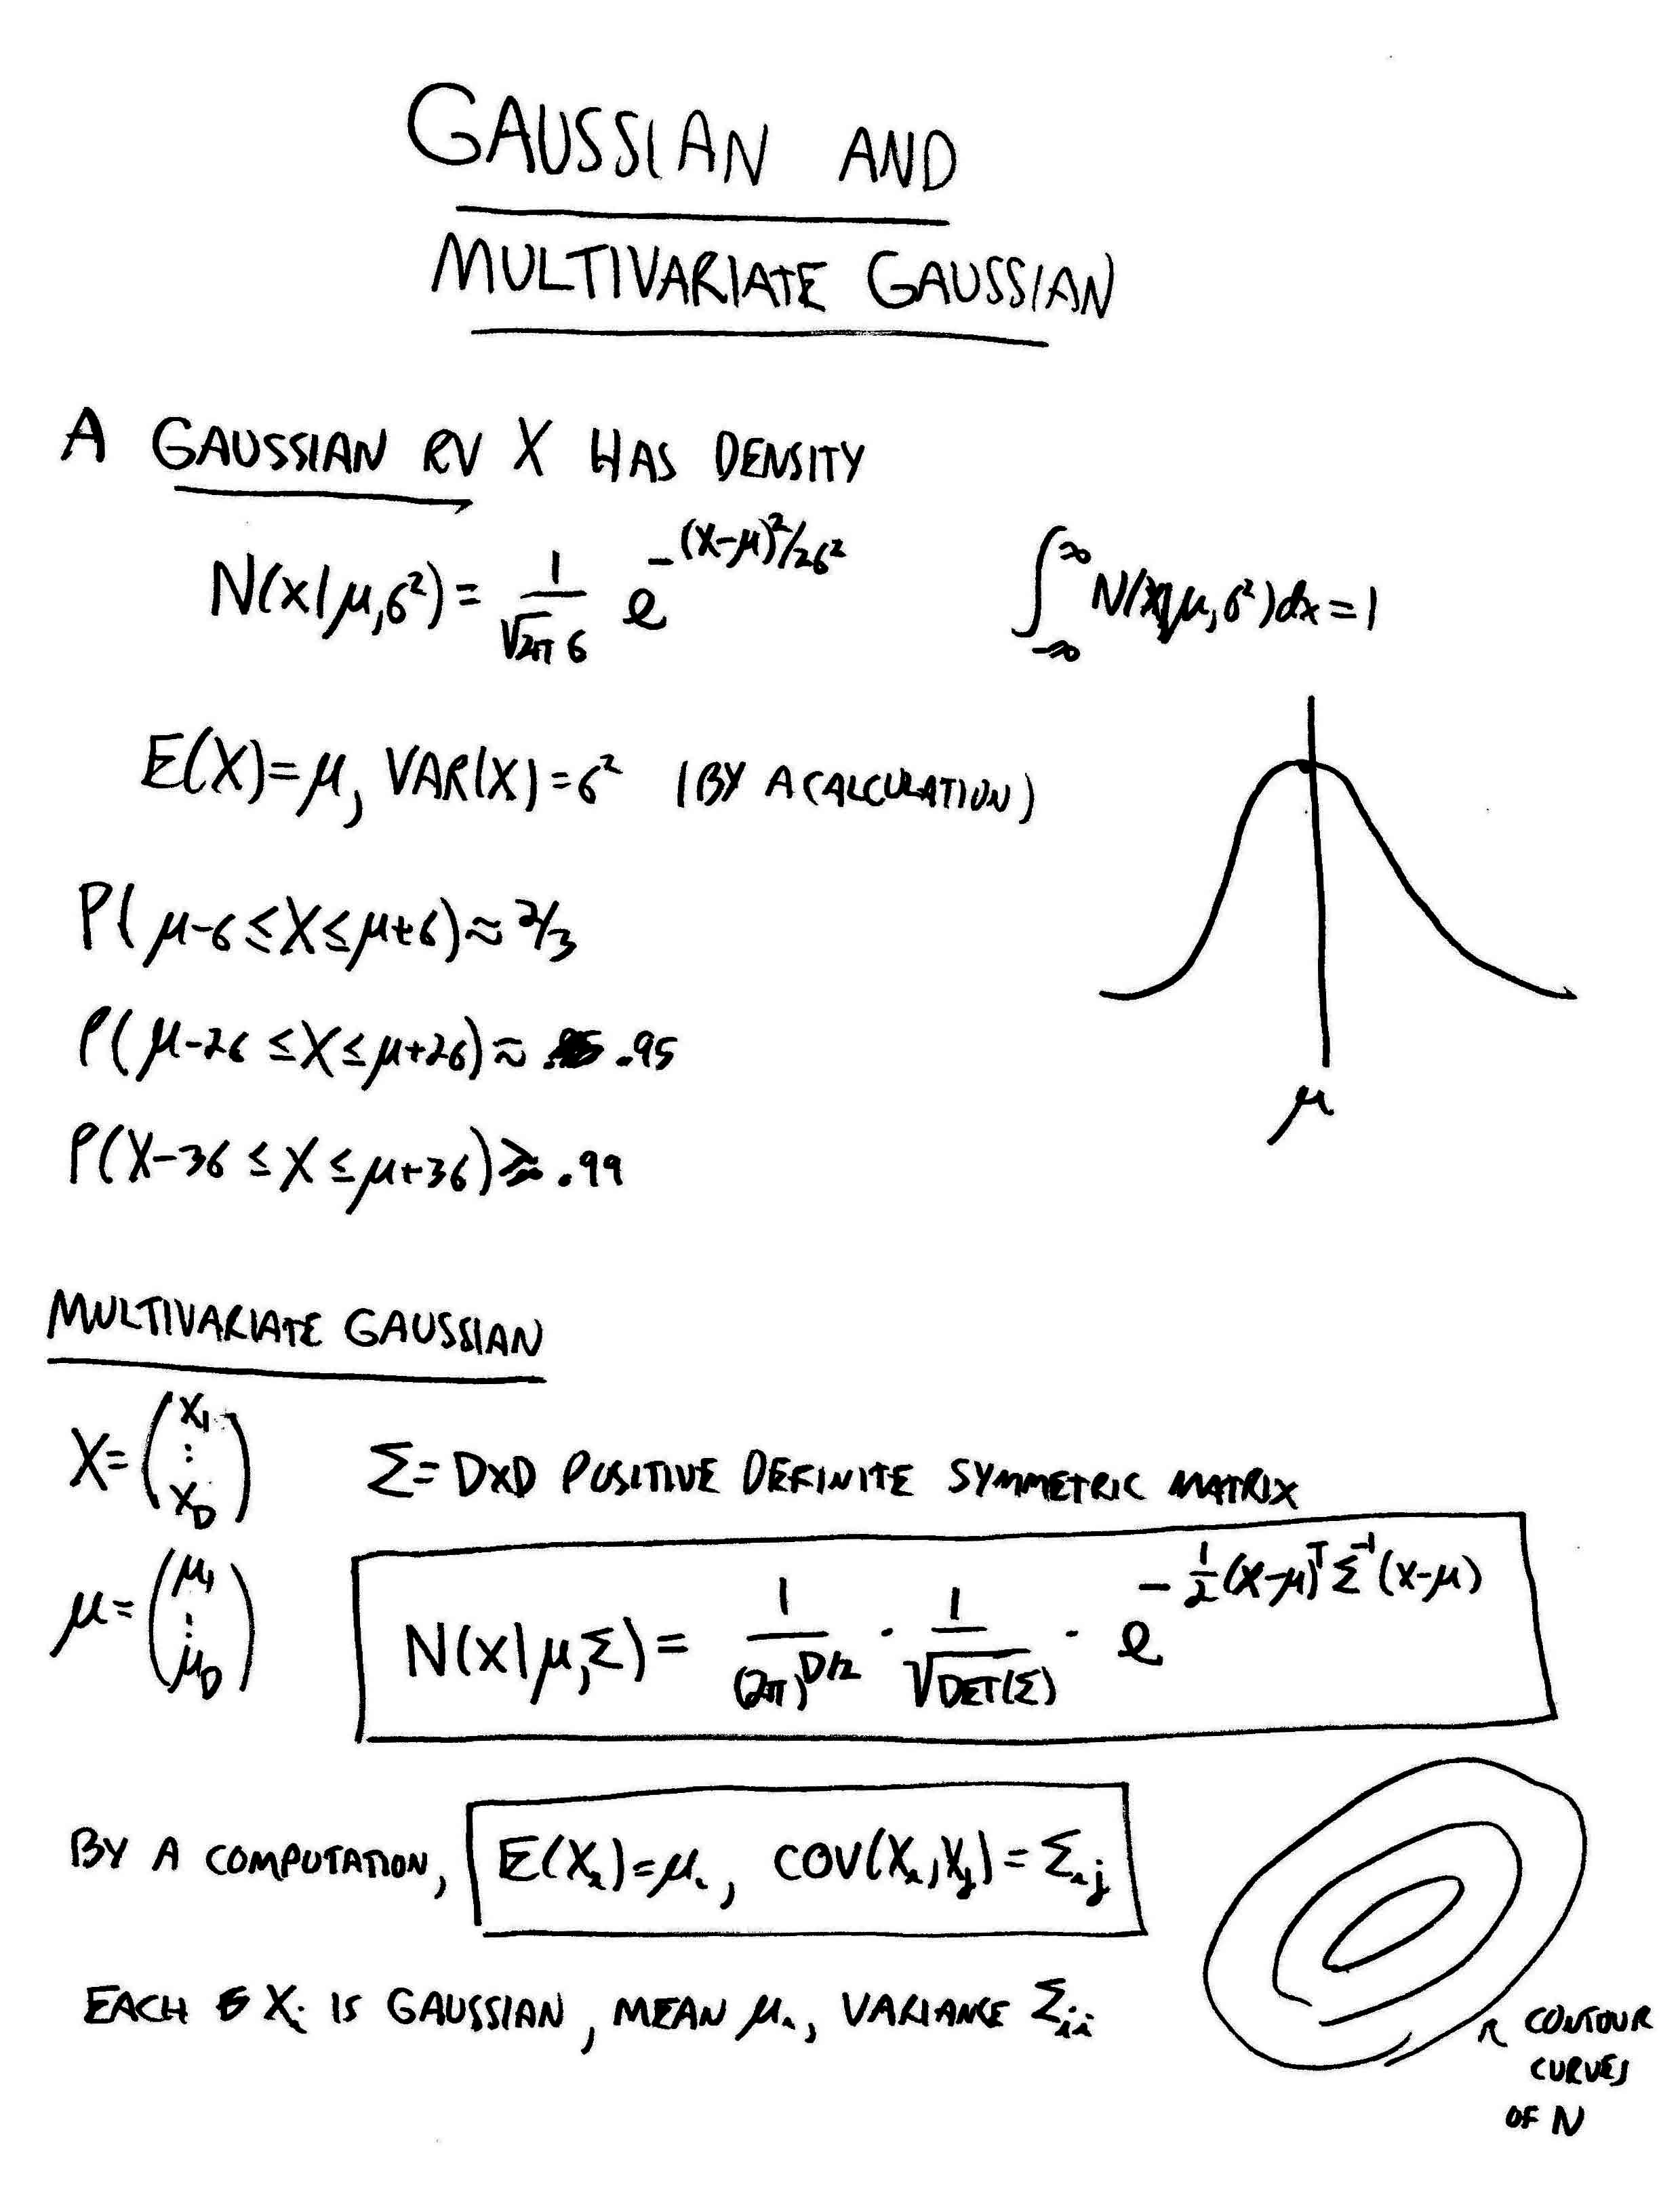 GAUSSIAN AND
MULTIVARIATE GAUSSIAN
A GAUSSIAN RV X HAS DENSITY
N(x|μ,σ²) = 1/(√2π σ) e^(-(x-μ)²/2σ²)
∫_{-∞}^{∞} N(x|μ,σ²)dx = 1
E(X)=μ, VAR(X)=σ² (BY A CALCULATION)
P(μ-σ ≤ X ≤ μ+σ) ≈ 2/3
P(μ-2σ ≤ X ≤ μ+2σ) ≈ .95
P(X-3σ ≤ X ≤ μ+3σ) ≥ .99
μ
MULTIVARIATE GAUSSIAN
X = (x₁ ⋮ x_D)
Σ = DxD POSITIVE DEFINITE SYMMETRIC MATRIX
μ = (μ₁ ⋮ μ_D)
N(x|μ,Σ) = 1/(2π)^(D/2) · 1/√DET(Σ) · e^(-½(x-μ)ᵀΣ⁻¹(x-μ))
BY A COMPUTATION, E(X_i)=μ_i, COV(X_i,X_j)=Σ_ij
EACH X_i IS GAUSSIAN, MEAN μ_i, VARIANCE Σ_ii
CONTOUR
CURVES
OF N